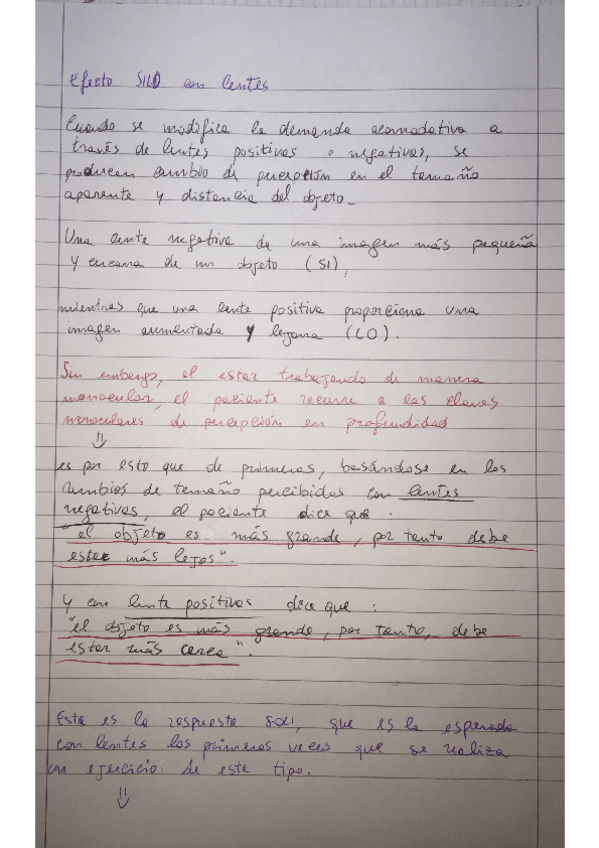 Efecto SILO con lentes
Cuando se modifica la demanda acomodativa a
través de lentes positivas o negativas, se
producen cambio de percepción en el tamaño
aparente y distancia del objeto.
Una lente negativa da una imagen más pequeña
y cercana de un objeto (SI),
mientras que una lente positiva proporciona una
imagen aumentada y lejana (LO).
Sin embargo, al estar trabajando de manera
monocular, el paciente recurre a las claves
monoculares de percepción en profundidad
⇓
es por esto que de primeras, basándose en los
cambios de tamaño percibidos con lentes
negativas, el paciente dice que:
"el objeto es más grande, por tanto debe
estar más lejos".
Y con lente positivas dice que:
"el objeto es más grande, por tanto, debe
estar más cerca".
Esta es la respuesta SOLI, que es la esperada
con lentes las primeras veces que se realiza
un ejercicio de este tipo.
⇓